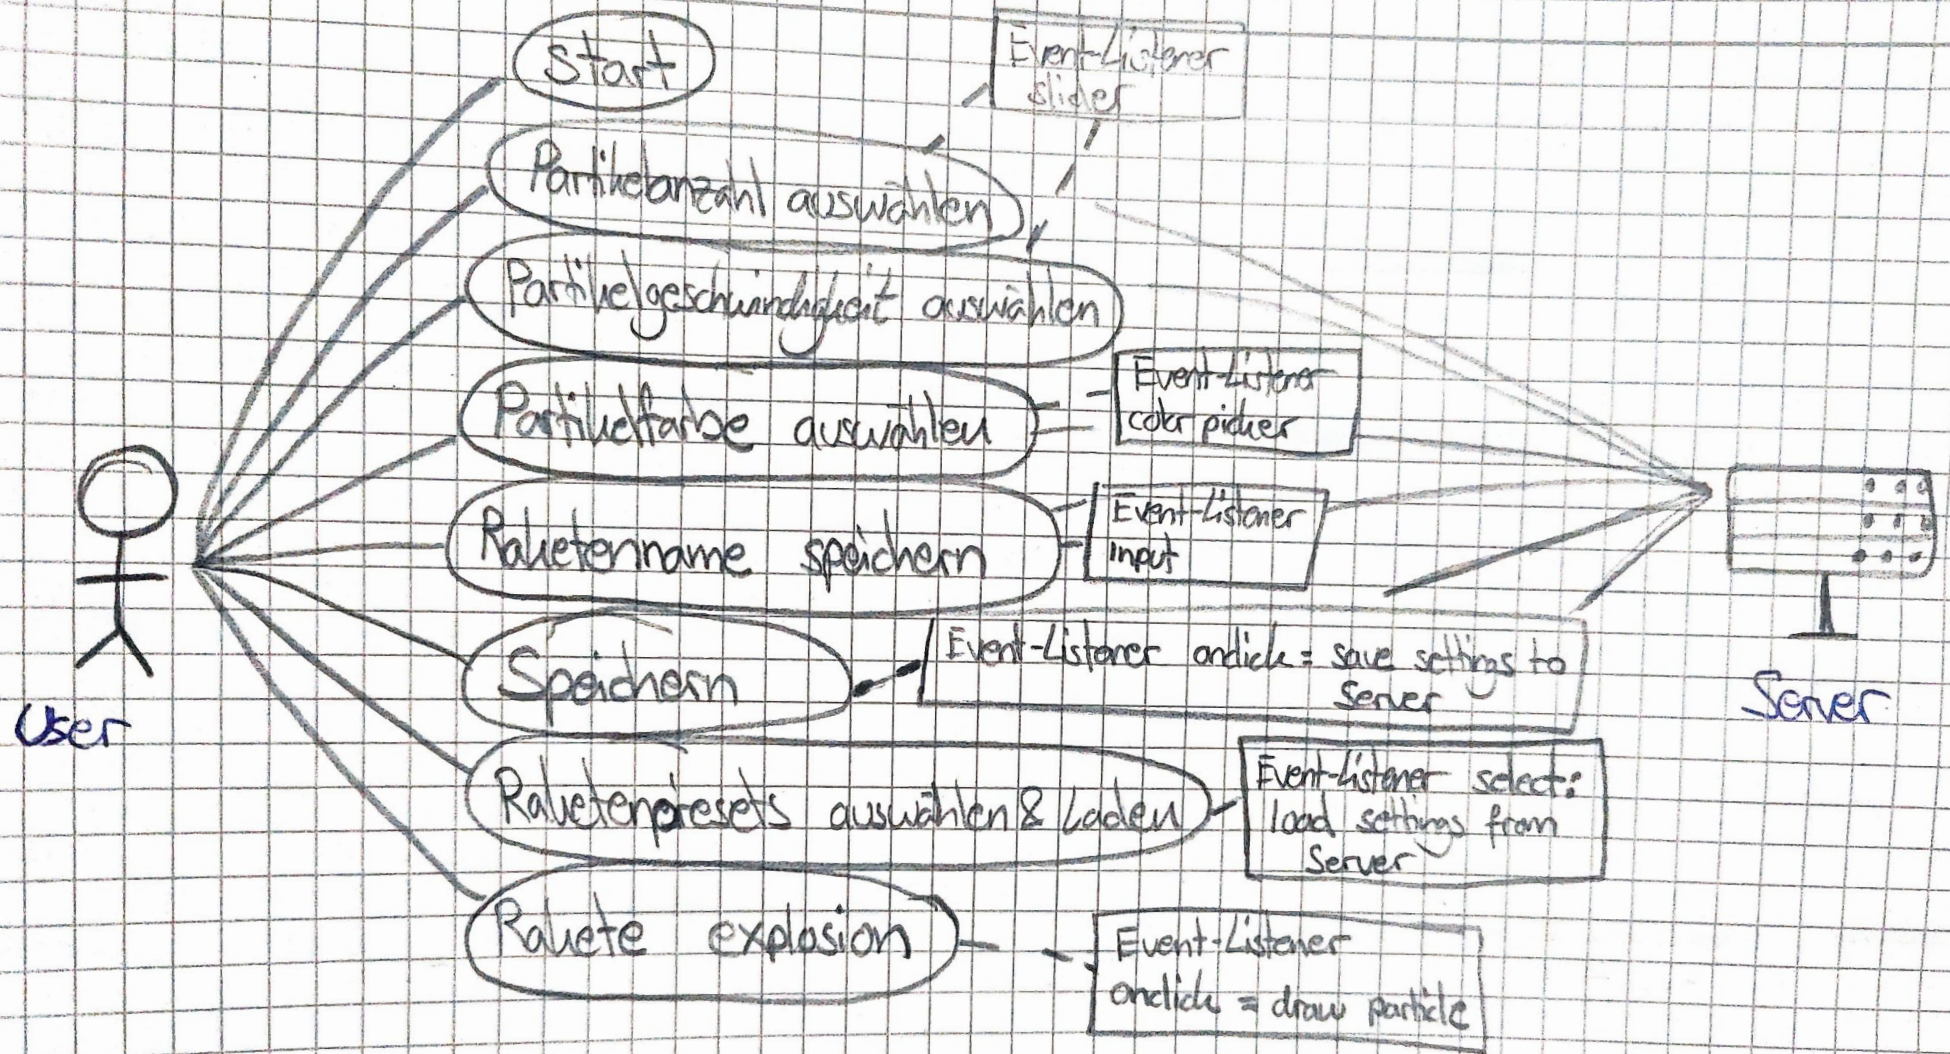 Start
Event-Listener
slider
Partikelanzahl auswählen
Partikelgeschwindigkeit auswählen
Partikelfarbe auswählen
Event-Listener
color picker
Raketenname speichern
Event-Listener
input
Speichern
Event-Listener onclick = save settings to
Server
Raketenpresets auswählen & Laden
Event-Listener select:
load settings from
Server
Rakete explosion
Event-Listener
onclick = draw particle
User
Server